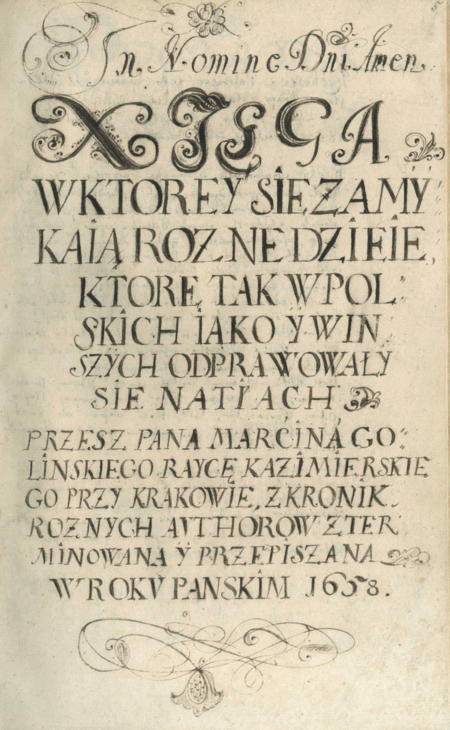 In Nomine Dni Amen
XIĘGA
W KTOREY SIE ZAMY:
KAIĄ ROZNE DZIEIE,
KTORĘ TAK W POL:
SKICH IAKO Y W IN:
SZYCH ODPRAWOWAŁY
SIE NATIACH
PRZESZ PANA MARCINA GO:
LINSKIEGO RAYCĘ KAZIMIERSKIE
GO PRZY KRAKOWIE, Z KRONIK
ROZNYCH AVTHOROW ZTER
MINOWANA Y PRZEPISZANA
W ROKV PANSKIM 1658.